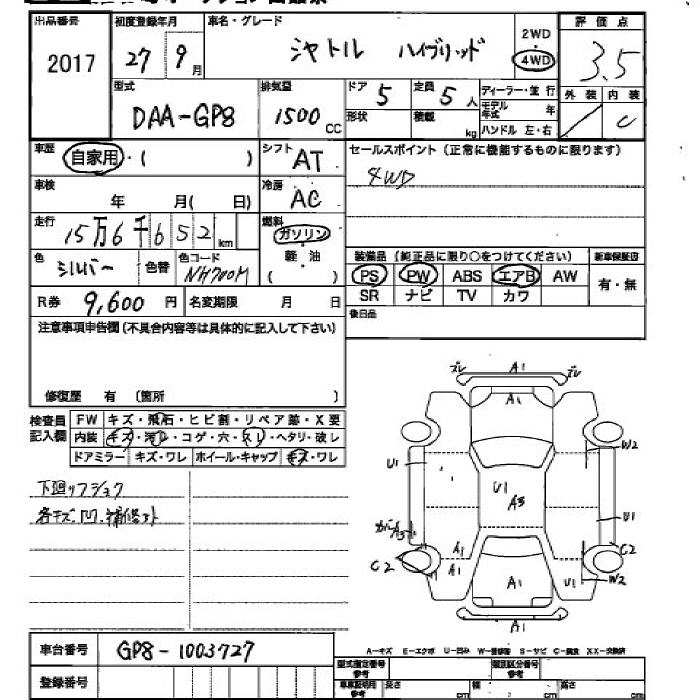 出品番号 初度登録年月 車名・グレード 2WD 評価点
2017 27 9月 シャトル ハイブリッド 4WD 3.5
型式 排気量 ドア 5 定員 5人 ディーラー・並行 外装 内装
DAA-GP8 1500 CC 形状 積載 kg モデル年式 年 C
ハンドル 左・右
車歴 自家用・( ) シフト AT セールスポイント(正常に機能するものに限ります)
4WD
車検 年 月( 日) 冷房 AC
走行 15万6千652km 燃料 ガソリン
軽油
( )
色 シルバー 色替 色コード NH700M
装備品(純正品に限り○をつけてください) 新車保証書
PS PW ABS エアB AW 有・無
SR ナビ TV カワ
R券 9,600円 名変期限 月 日
後日品
注意事項申告欄(不具合内容等は具体的に記入して下さい)
修復歴 有 (箇所 )
検査員記入欄 FW キズ・飛石・ヒビ割・リペア跡・X要
内装 キズ・汚レ・コゲ・穴・スレ・ヘタリ・破レ
ドアミラー キズ・ワレ ホイール・キャップ キズ・ワレ
下廻リフショク
各キズ、凹、補修永
ズレ A1 ズレ
A1
W2
U1
U1 A3
U1
カバーA3
C2 A1 A1 C2
A1 U1 W2
A1
A-キズ E-エクボ U-凹み W-補修跡 S-サビ C-腐食 XX-交換済
車台番号 GP8-1003727
登録番号
型式指定番号 参考 類別区分番号 参考
車庫証明用 参考 長さ cm 幅 cm 高さ cm